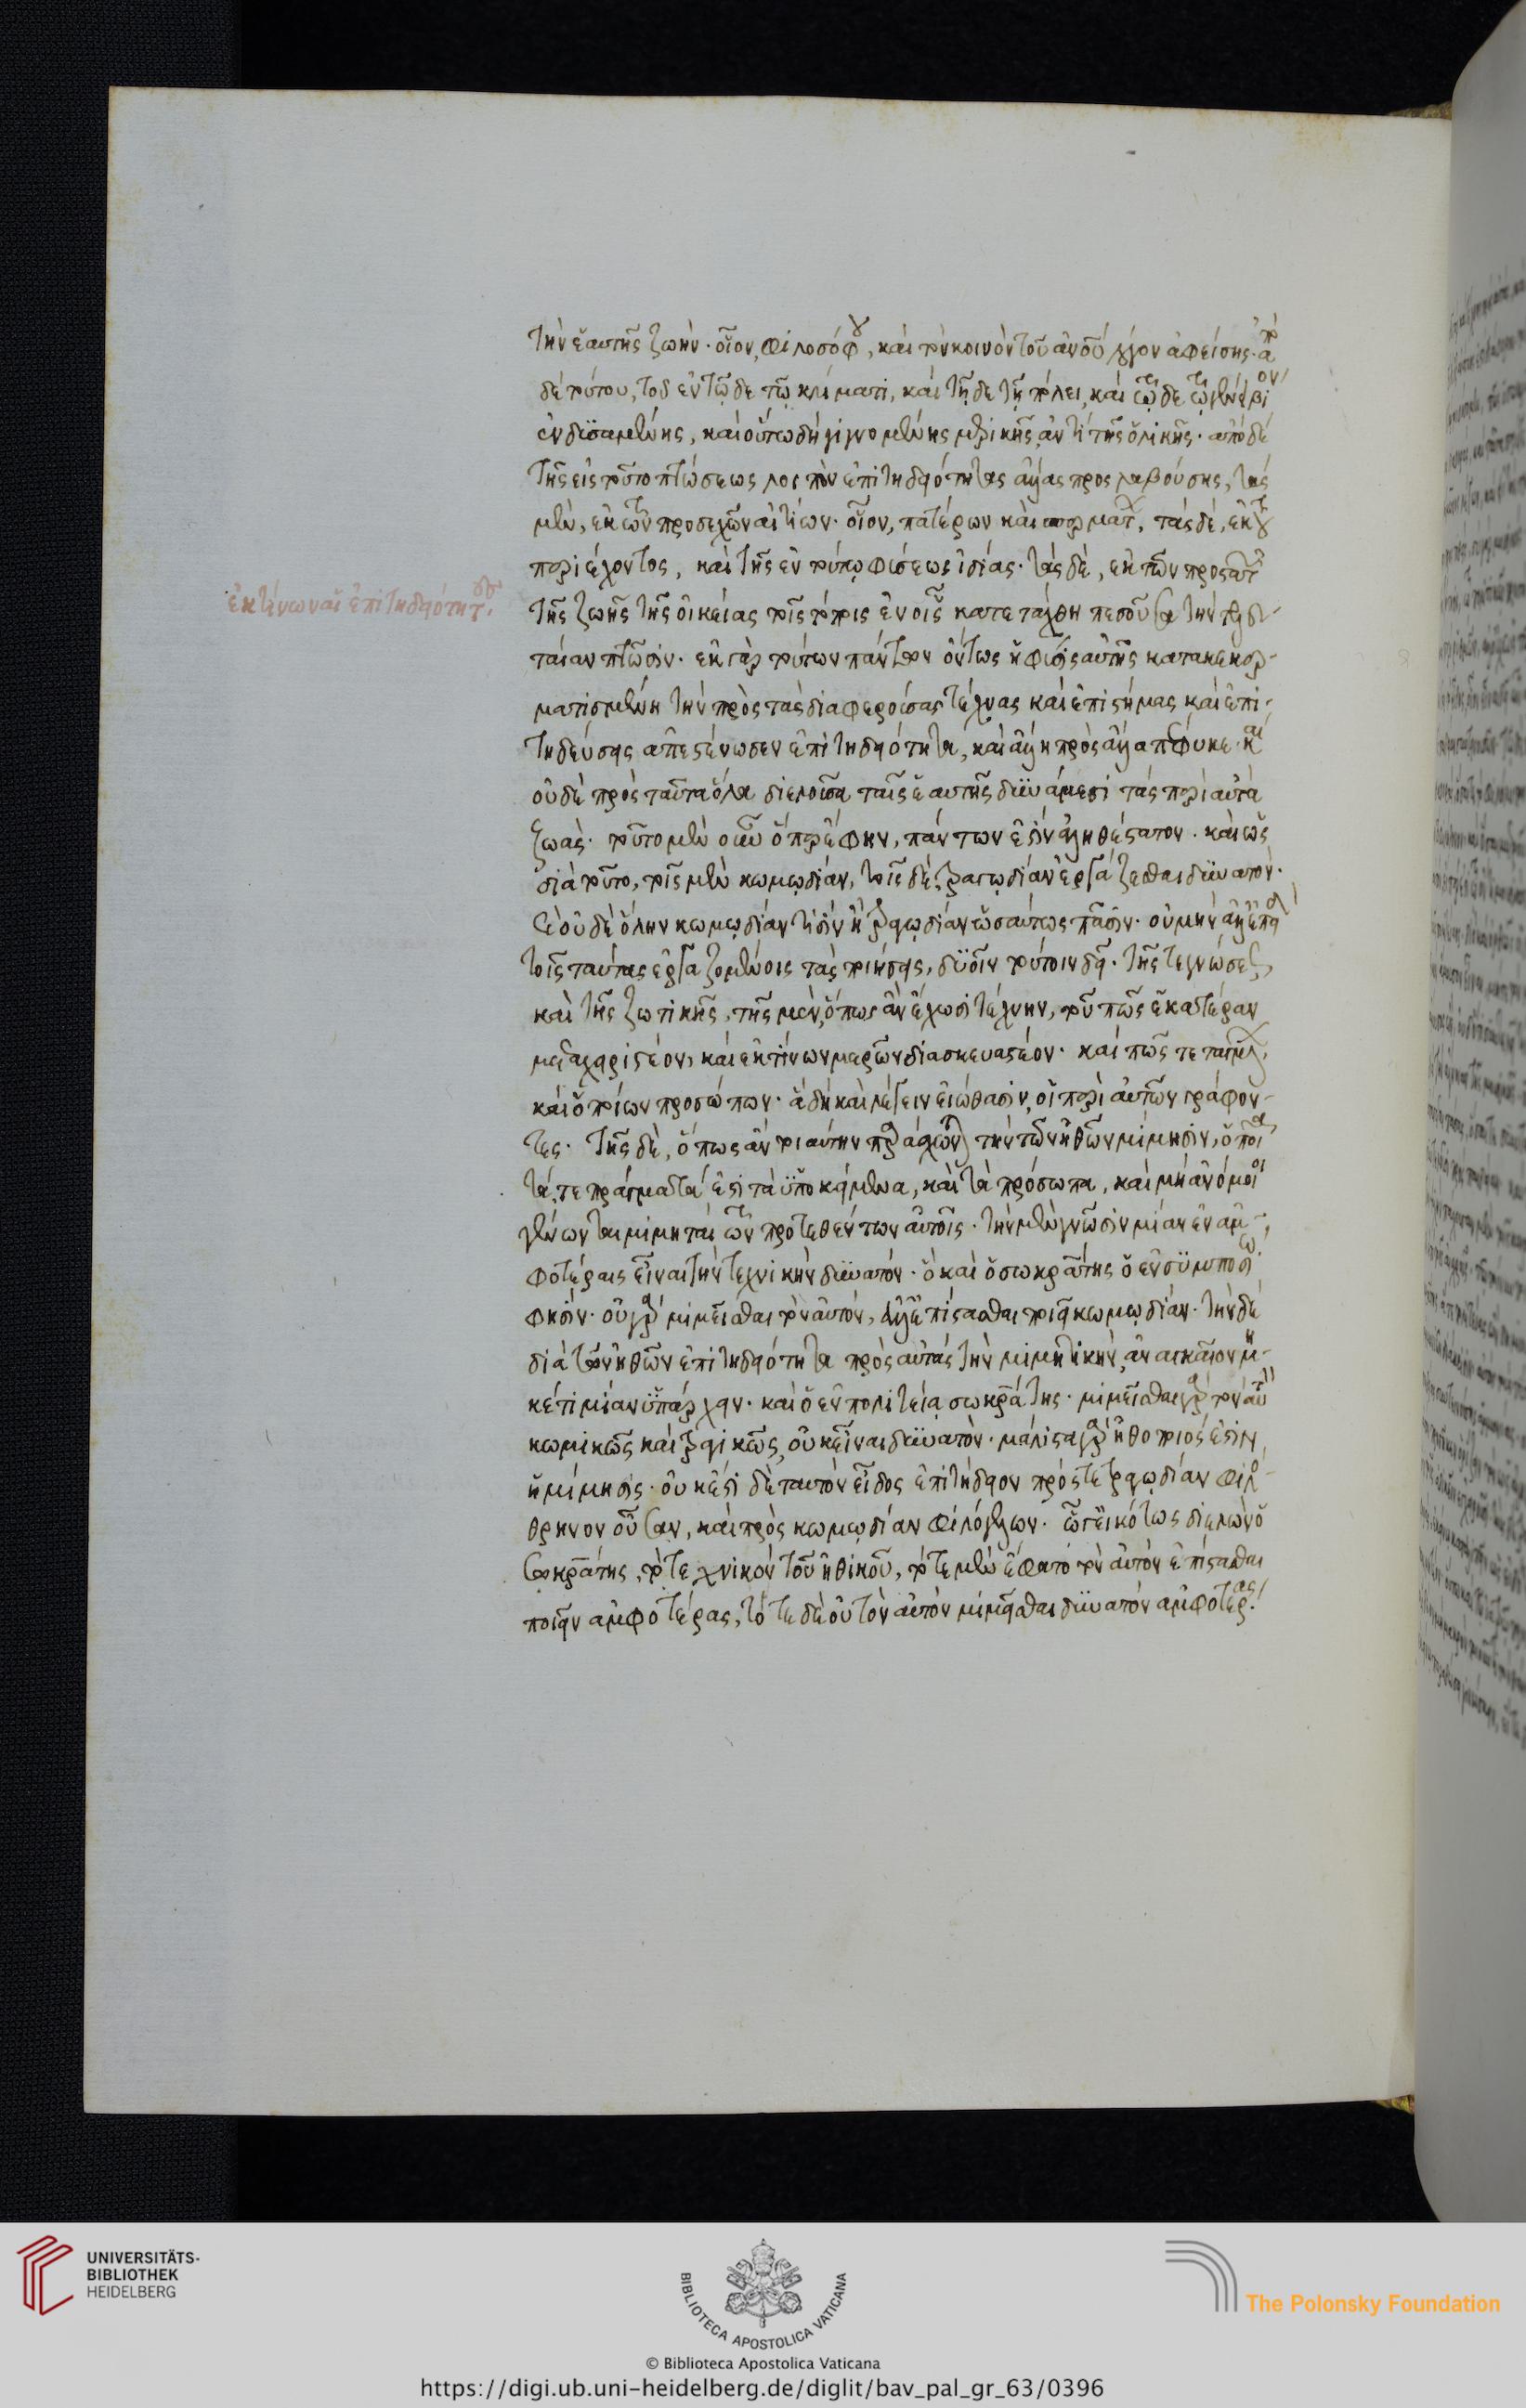 τὴν ἑαυτῆς ζωὴν. οἷον, φιλοσόφου, καὶ τὸν κοινὸν τοῦ ἀνοῦ λόγον ἀφείσης. ἀπὸ
δὲ τούτου, τοδ ἐν τῶδε τῶ κλίματι, καὶ τῆδε τῆ πόλει, καὶ τῶδε τῶ γένει βίον
ἐνδυσαμένης, καὶ οὕτω δὴ γιγνομένης μερικῆς ἀντὶ τῆς ὁλικῆς. ἀπὸ δὲ
τῆς εἰς τοῦτο πτώσεως ἐπιτηδειότητας ἄλλας προσλαβούσης, τὰς
μὲν, ἐκ τῶν προσεχῶν αἰτίων. οἷον, πατέρων καὶ σπερμάτ, τὰς δὲ, ἐκ τοῦ
περιέχοντος, καὶ τῆς ἐν τούτω φύσεως ἰδίας. τὰς δὲ, ἐκ τῶν
ἐκ τίνων αἱ ἐπιτηδειότητ.
τῆς ζωῆς τῆς οἰκείας τοῖς τόποις ἐν οἷς κατετάχθη πεσοῦσα τὴν τελευ-
ταίαν πτῶσιν. ἐκ γὰρ τούτων πάντων ὄντως ἡ φύσις αὐτῆς κατακεκερ-
ματισμένη τὴν πρὸς τὰς διαφερούσας τέχνας καὶ ἐπιστήμας καὶ ἐπι-
τηδεύσεις ἀπεστένωσεν ἐπιτηδειότητα, καὶ ἄλλη πρὸς ἄλλα πέφυκε. καὶ
οὐδὲ πρὸς ταῦτα ὅλα διελοῦσα ταῖς ἑαυτῆς δυνάμεσι τὰς περὶ αὐτὰ
ζωάς. τοῦτο μὲν οὖν ὅπερ ἔφην, πάντων ἐστὶν ἀληθέστατον. καὶ ὡς
διὰ τοῦτο, τοῖς μὲν κωμωδίαν, τοῖς δὲ τραγωδίαν ἐργάζεσθαι δυνατόν.
οὐδὲ ὅλην κωμωδίαν τισὶν ἢ τραγωδίαν ὡσαύτως πᾶσιν. οὐ μὴν ἀλλ ἐπεὶ
τοῖς ταύτας ἐργαζομένοις τὰς ποιήσεις, δυσῖν τούτοιν δεῖ. τῆς τε γνώσεως,
καὶ τῆς ζωτικῆς, τῆς μὲν, ὅπως ἂν ἔχωσι τέχνην, τοῦ πῶς ἑκατέραν
μεταχειριστέον, καὶ ἐκ τίνων μερῶν διασκευαστέον. καὶ πῶς τεταγμέν,
καὶ ὁποίων προσώπων. ἃ δὴ καὶ λέγειν εἰώθασιν, οἱ περὶ αὐτῶν γράφον-
τες. τῆς δὲ, ὅπως ἂν τοιαύτην τὴν τῶν ἠθῶν μίμησιν, ὁποῖα
τά τε πράγματά ἐστι τὰ ὑποκείμενα, καὶ τὰ πρόσωπα, καὶ μὴ ἀνόμοιοι
γένωνται μιμηταὶ τῶν προτεθέντων αὐτοῖς. τὴν μὲν γνῶσιν μίαν ἐν ἀμ-
φοτέραις εἶναι τὴν τεχνικὴν δυνατόν. ὃ καὶ ὁ σωκράτης ὁ ἐν συμποσίω
φησίν. οὐ γὰρ μιμεῖσθαι τὸν αὐτόν, ἀλλ ἐπίστασθαι ποιεῖν κωμωδίαν. τὴν δὲ
διὰ τῶν ἠθῶν ἐπιτηδειότητα πρὸς αὐτὰς τὴν μιμητικὴν, ἀναγκαῖον μη-
κέτι μίαν ὑπάρχειν. καὶ ὁ ἐν πολιτεία σωκράτης. μιμεῖσθαι γὰρ τὸν αὐτὸν
κωμικῶς καὶ τραγικῶς, οὐκ εἶναι δυνατὸν. μάλιστα γὰρ ἠθοποιός ἐστιν
ἡ μίμησις. οὐκ ἔστι δὲ ταυτὸν εἶδος ἐπιτήδειον πρός τε τραγωδίαν φιλό-
θρηνον οὖσαν, καὶ πρὸς κωμωδίαν φιλόγελων. ὥστ εἰκότως διελὼν ὁ
σωκράτης, τό τε τεχνικὸν τοῦ ἠθικοῦ, τότε μὲν ἔφατο τὸν αὐτὸν ἐπίστασθαι
ποιεῖν ἀμφοτέρας, τότε δὲ οὐ τὸν αὐτὸν μιμεῖσθαι δυνατόν ἀμφοτέρας.
UNIVERSITÄTS-
BIBLIOTHEK
HEIDELBERG
BIBLIOTECA APOSTOLICA VATICANA
The Polonsky Foundation
© Biblioteca Apostolica Vaticana
https://digi.ub.uni-heidelberg.de/diglit/bav_pal_gr_63/0396